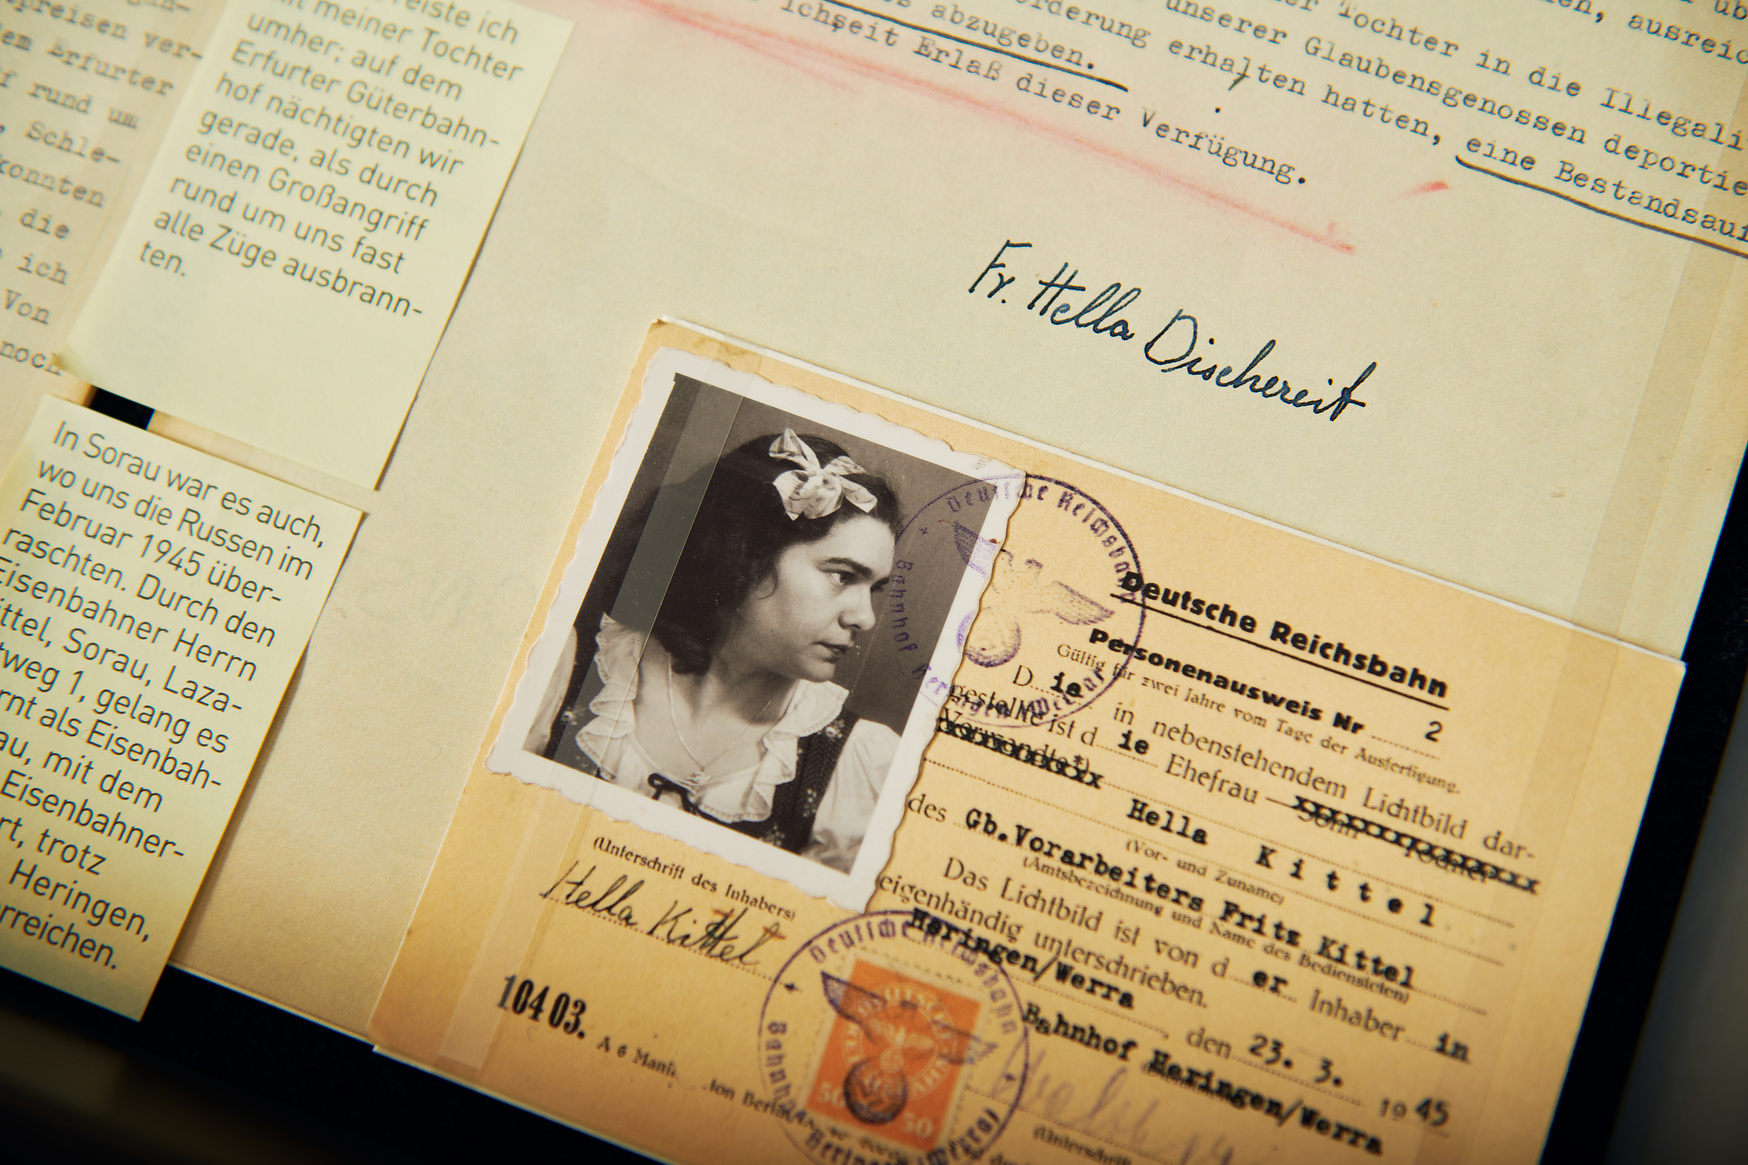 preisen ver-
em Erfurter
f rund um
, Schle-
konnten
die
ich
Von
noch
reiste ich
mit meiner Tochter
umher; auf dem
Erfurter Güterbahn-
hof nächtigten wir
gerade, als durch
einen Großangriff
rund um uns fast
alle Züge ausbrann-
ten.
In Sorau war es auch,
wo uns die Russen im
Februar 1945 über-
raschten. Durch den
Eisenbahner Herrn
ittel, Sorau, Laza-
tweg 1, gelang es
rnt als Eisenbah-
au, mit dem
Eisenbahner-
rt, trotz
Heringen,
rreichen.
abzugeben.
Ichseit Erlaß dieser Verfügung.
Tochter in die Illegali
orderung erhalten hatten, eine Bestandsauf
unserer Glaubensgenossen deportie
ausreic
Fr. Hella Dischereit
Deutsche Reichsbahn
Bahnhof
Deutsche Reichsbahn
Personenausweis Nr 2
Gültig für zwei Jahre vom Tage der Ausfertigung.
Die in nebenstehendem Lichtbild dar-
gestellte ist die Ehefrau
Hella Kittel
(Vor- und Zuname)
des Gb.Vorarbeiters Fritz Kittel
(Amtsbezeichnung und Name des Bediensteten)
Das Lichtbild ist von der Inhaberin
eigenhändig unterschrieben.
Heringen/Werra, den 23. 3. 1945
Bahnhof Heringen/Werra
(Unterschrift des Inhabers)
Hella Kittel
104 03.
A 6
Berlin
Deutsche Reichsbahn
50
50
(Unterschrift